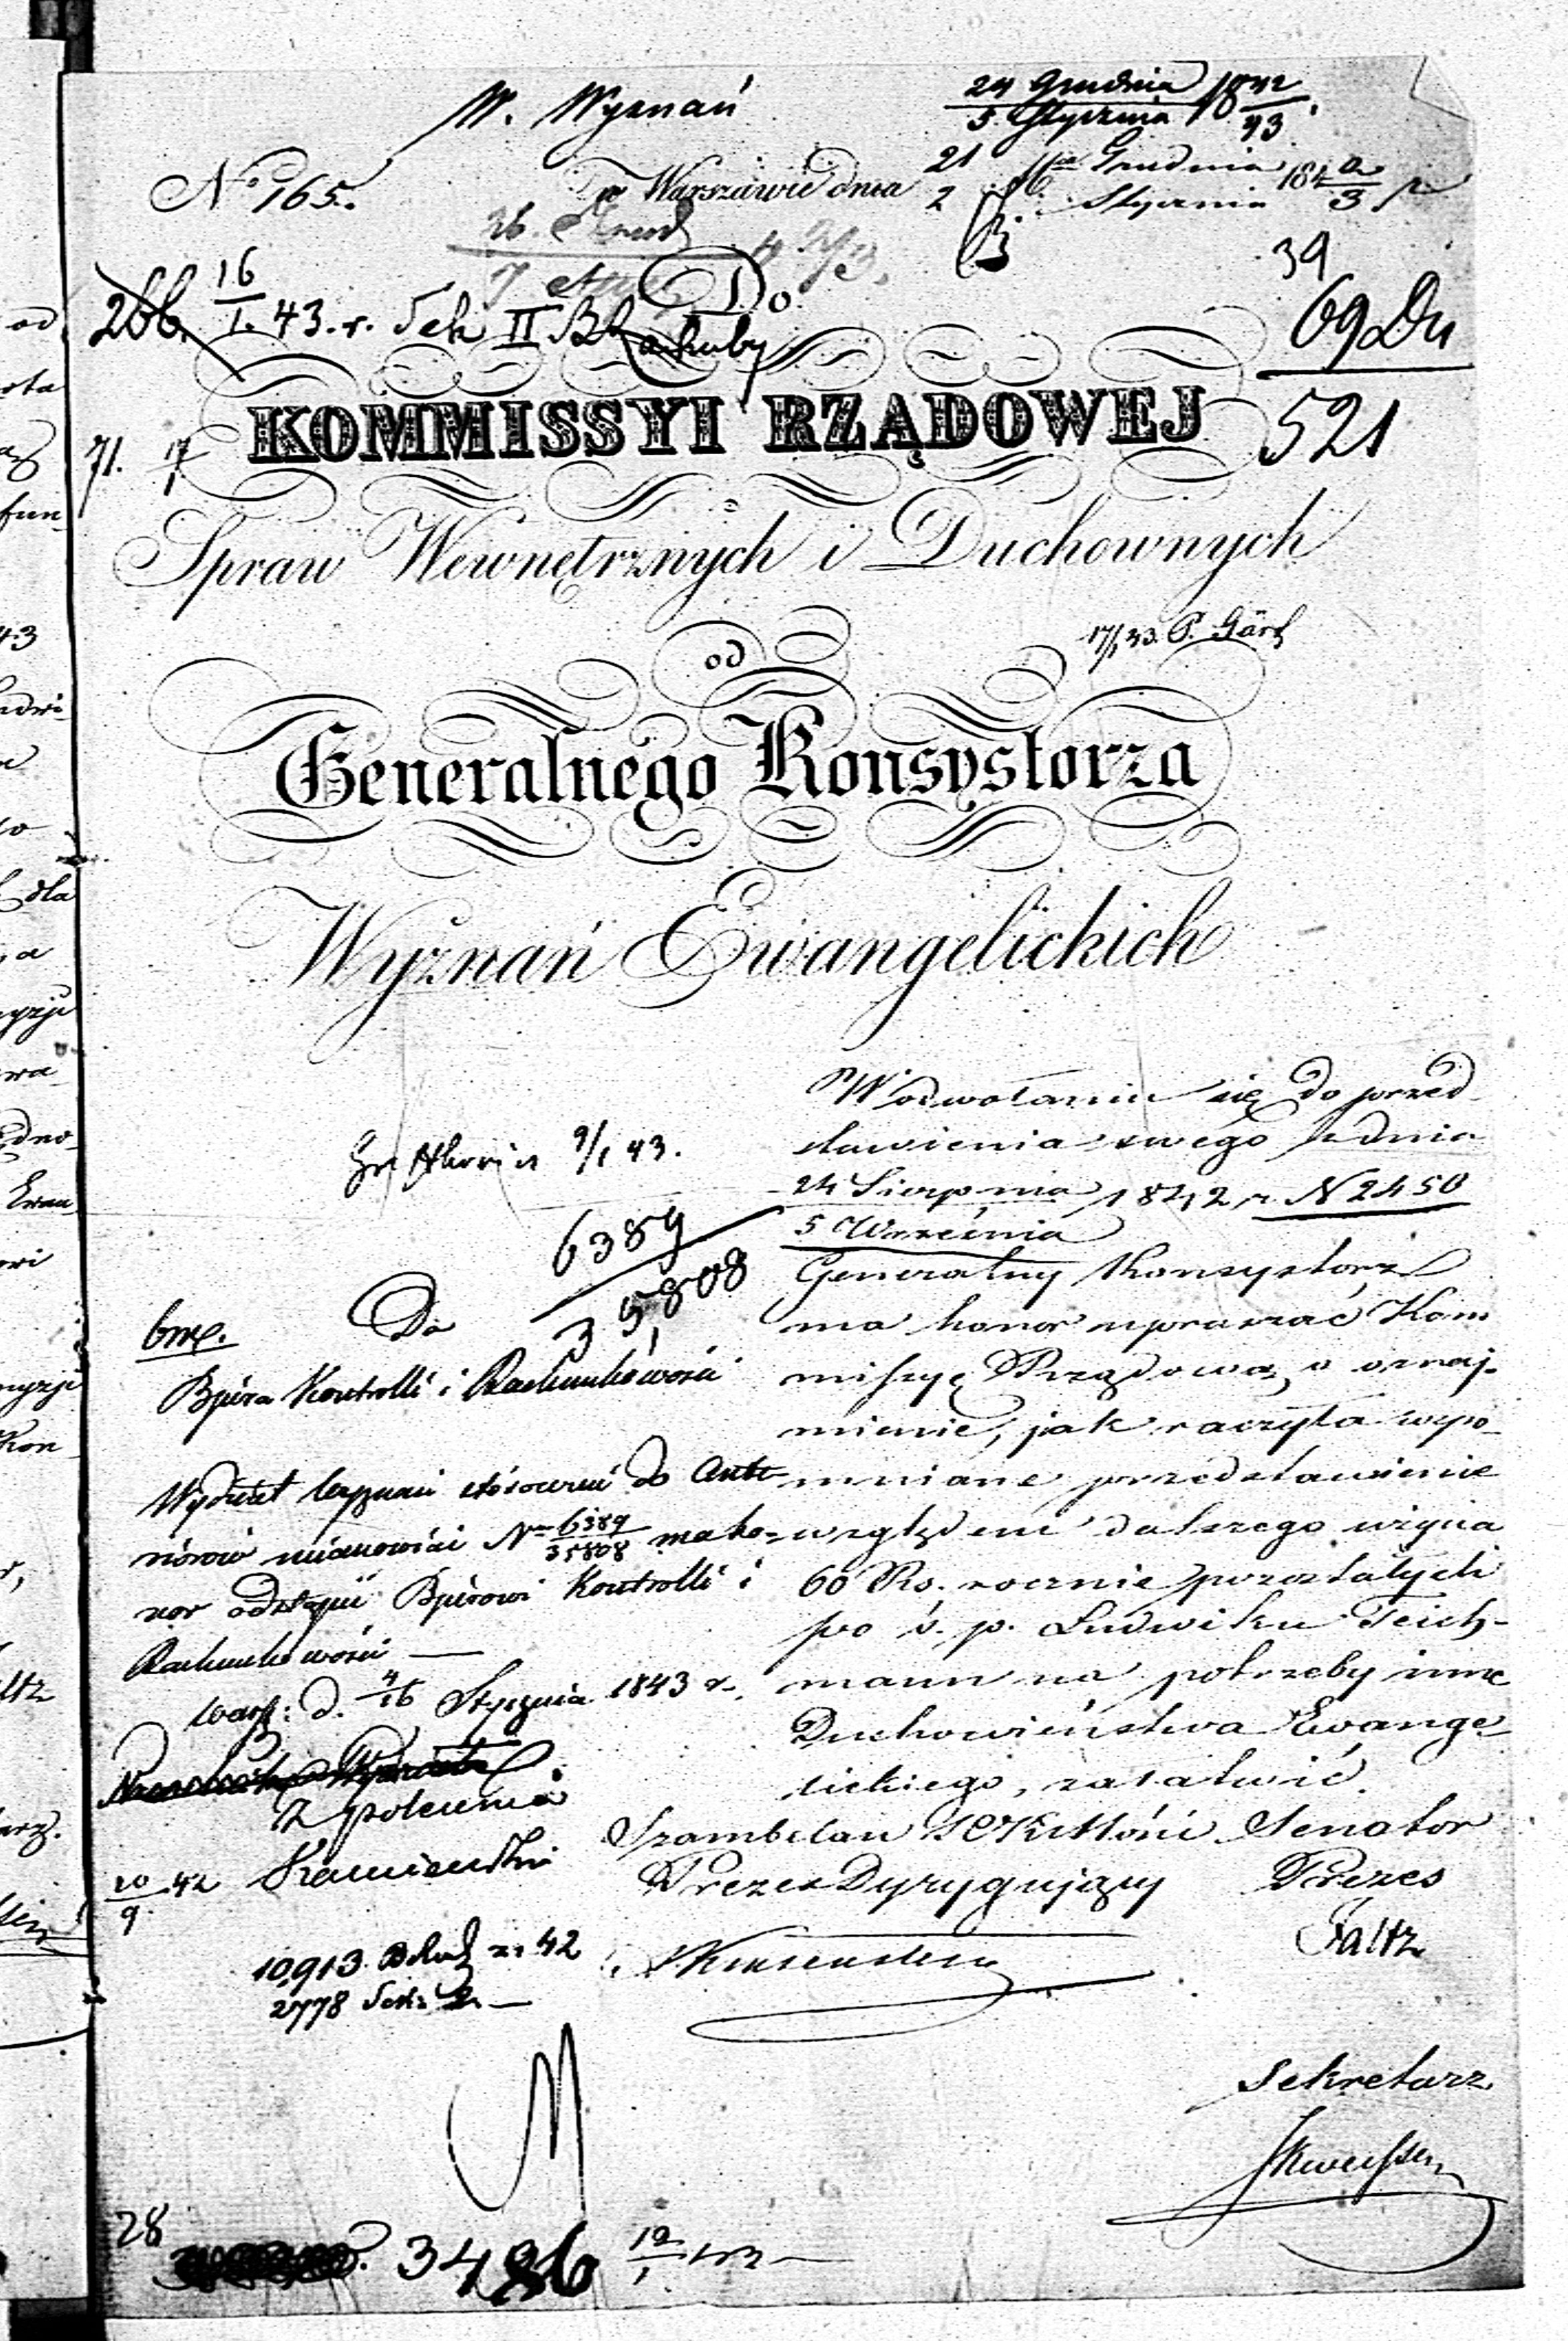 W. Wyznań
24 Grudnia / 5 Stycznia 18 42/43.
No 165.
w Warszawie dnia 21 Grudnia / 2 Stycznia 184 2/3 r.
39
266. 16/I. 43. r. Sek II B Rachuby
Do
69 Du
521
KOMMISSYI RZĄDOWEJ
71. 17/1
Spraw Wewnętrznych i Duchownych
17/1 43. P.
od
Generalnego Konsystorza
Wyznań Ewangelickich
W odwołaniu się do przed-
stawienia swego z dnia
9/1 43.
24 Sierpnia / 5 Września 1842 r. N 2450
Generalny Konsystorz
ma honor upraszać Kom
missyę Rządową o oznaj-
mienie, jak raczyła wspo-
mniane przedstawienie
względem dalszego użycia
60 Rs. rocznie pozostałych
po ś. p. Ludwiku Teich-
mann na potrzeby inne
Duchowieństwa Ewange-
lickiego, załatwić.
6389 / 35,808
Do
Bjóra Kontrolli i Rachunkowości
Wydział Wyznań stósownie do
mianowicie No 6389/35808 ma ho-
nor odstąpić Bjórowi Kontrolli i
Rachunkowości —
Warsz: d. 4/16 Stycznia 1843 r.
Z polecenia
Kamieński
20/9 42
Szambelan JCKMości
Prezes Dyrygujący
Senator
Prezes
Faltz
10,913. z r. 42
2778 Sek: 2. —
Sekretarz
28
3486